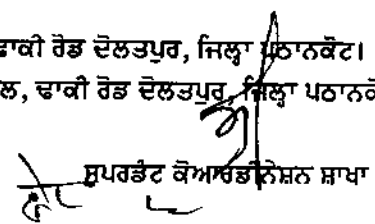 ਢਾਕੀ ਰੋਡ ਦੌਲਤਪੁਰ, ਜਿਲ੍ਹਾ ਪਠਾਨਕੋਟ।
ਲ, ਢਾਕੀ ਰੋਡ ਦੌਲਤਪੁਰ, ਜਿਲ੍ਹਾ ਪਠਾਨਕੋ
ਸੁਪਰਡੰਟ ਕੋਆਰਡੀਨੇਸ਼ਨ ਸ਼ਾਖਾ